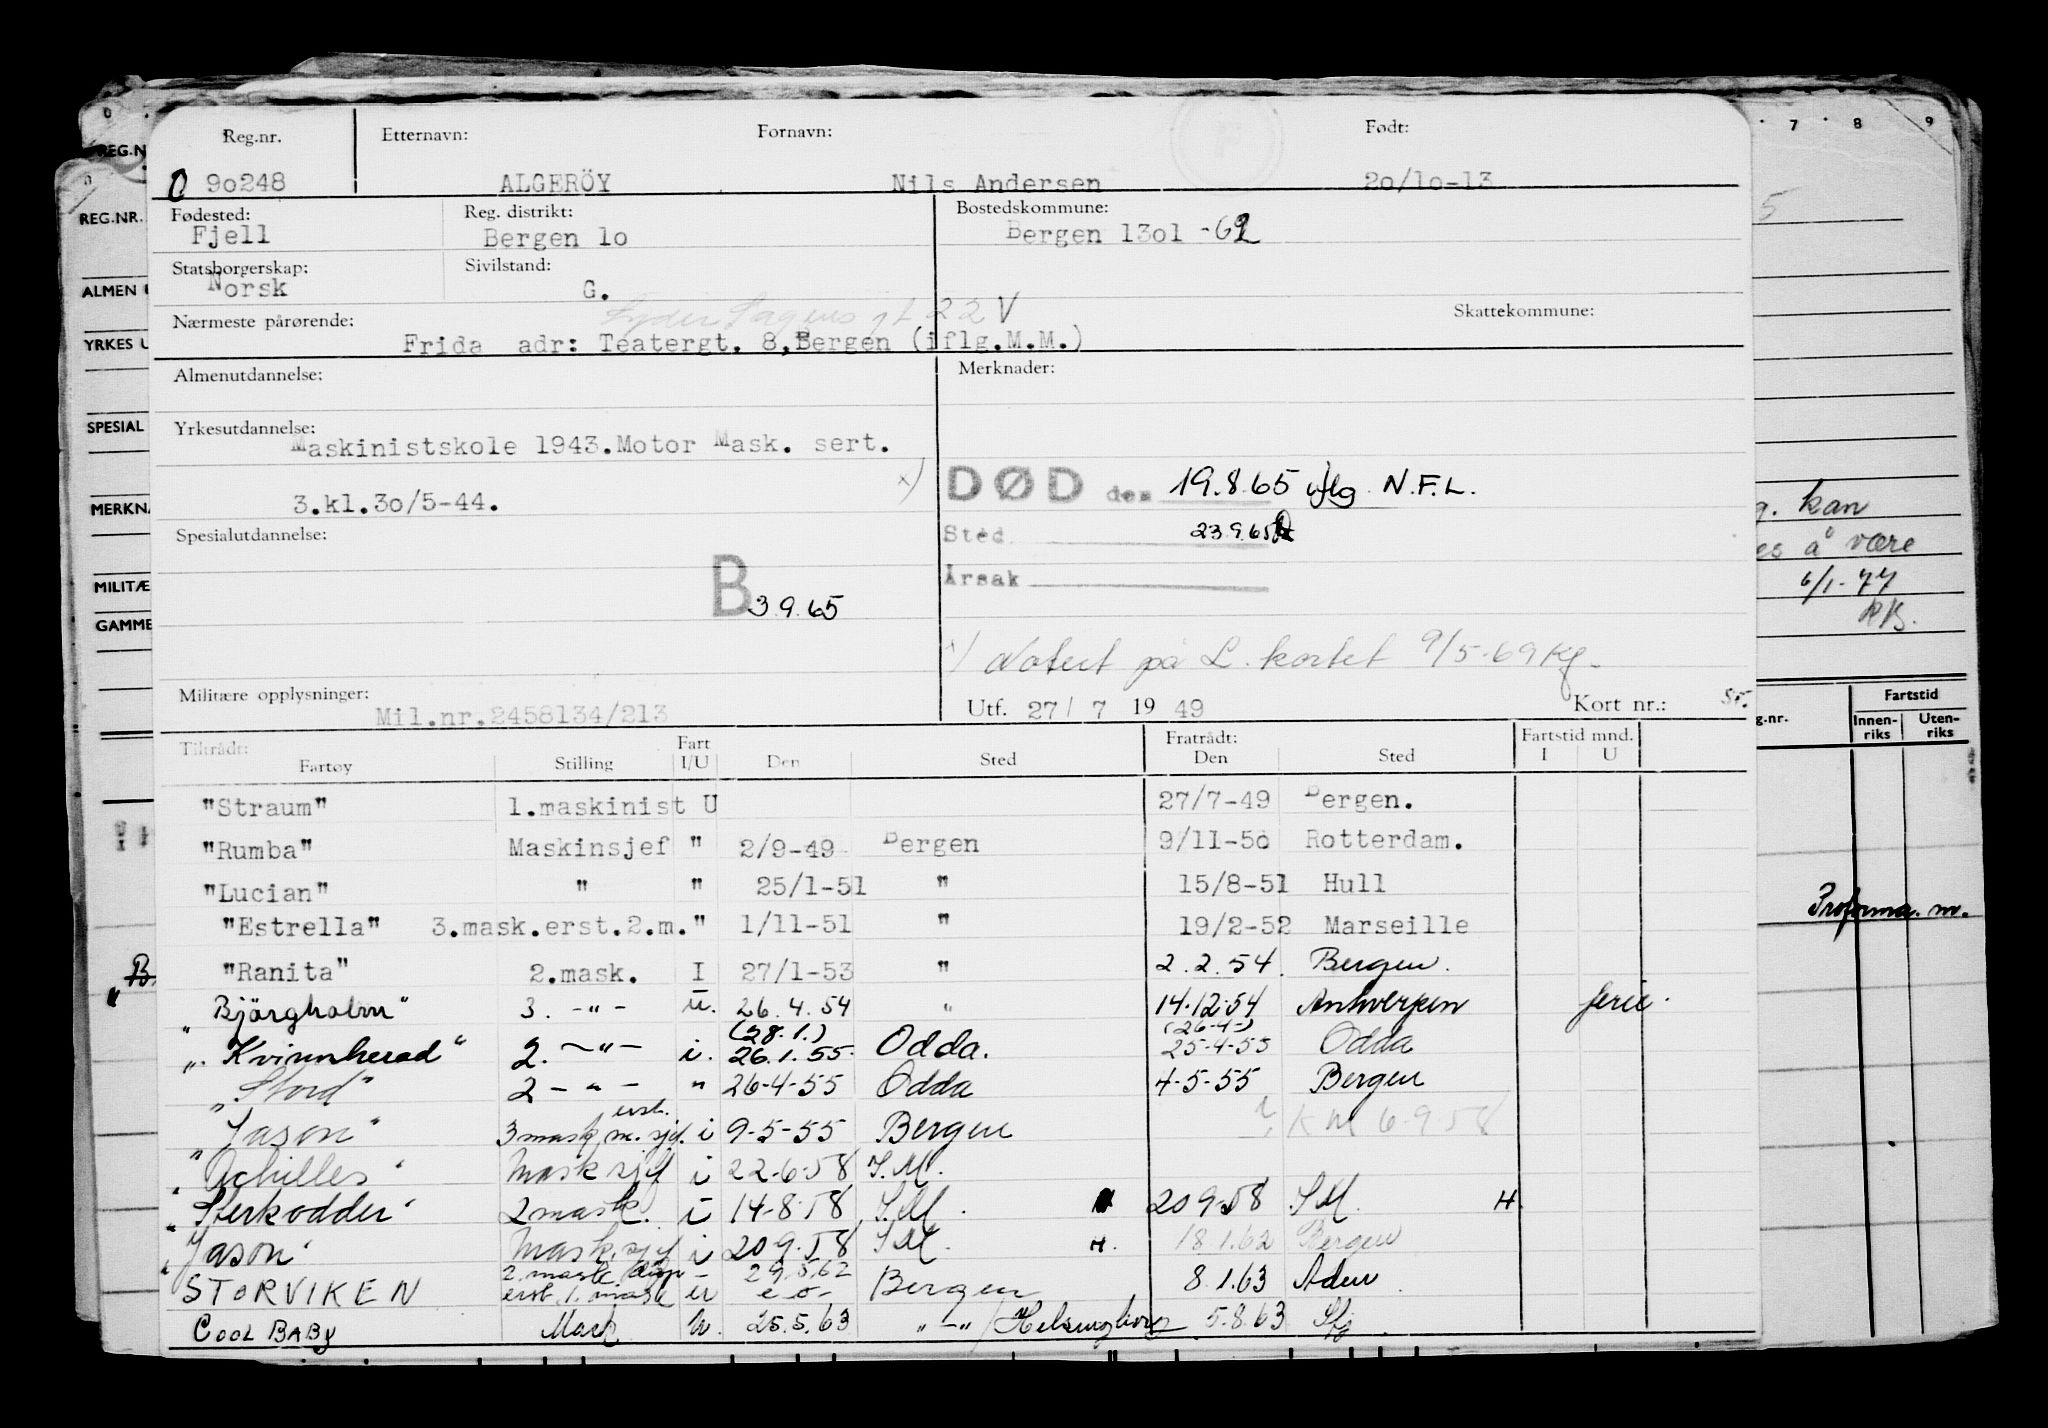 Reg.nr. Etternavn: Fornavn: Født:
0 90248 ALGERÖY Nils Andersen 20/10-13
Fødested: Reg. distrikt: Bostedskommune:
Fjell Bergen 10 Bergen 1301 -62
Statsborgerskap: Sivilstand:
Norsk G.
Lyder Sagens gt 22 V
Nærmeste pårørende: Skattekommune:
Frida adr: Teatergt. 8, Bergen (iflg.M.M.)
Almenutdannelse: Merknader:
Yrkesutdannelse:
Maskinistskole 1943. Motor Mask. sert.
x) DØD den 19.8.65 iflg. N.F.L.
3.kl.30/5-44.
Spesialutdannelse: Sted 23.9.65
Årsak
B 3.9.65
x) Notert på L. kortet 9/5-69 Kg.
Militære opplysninger: Utf. 27/7 1949 Kort nr.:
Mil.nr.2458134/213
Tiltrådt: Fratrådt: Fartstid mnd.
Fartøy Stilling Fart I/U Den Sted Den Sted I U
"Straum" 1.maskinist U 27/7-49 Bergen.
"Rumba" Maskinsjef " 2/9-49 Bergen 9/11-50 Rotterdam.
"Lucian" " " 25/1-51 " 15/8-51 Hull
"Estrella" 3.mask.erst.2.m." 1/11-51 " 19/2-52 Marseille
"Ranita" 2.mask. I 27/1-53 " 2.2.54. Bergen.
"Björgholm" 3. -"- u. 26.4.54 " 14.12.54 Antwerpen ferie.
(28.1.) (26-4-)
"Kvinnherad" 2. -"- i. 26.1.55. Odda. 25-4-55 Odda
"Stord" 2 -"- " 26-4-55 Odda 4-5-55 Bergen
"Jason" 3 mask erst. m. sjef. i 9-5-55 Bergen ? KM 6-9-58
"Achilles" Mask sjef i 22-6-58 S.M.
"Sterkodder" 2 mask. i 14-8-58 S.M. 20 9-58 SM. H
"Jason" Mask. sjef i 20 9-58 SM. H. 18.1.62 Bergen
STORVIKEN 2. mask disp erst. 1. mask u 29.5.62 e.o. Bergen 8.1.63 Aden
COOL BABY Mask u. 25.5.63 " - " / Helsingborg 5.8.63
REG.NR.
ALMEN
YRKES U
SPESIAL
MERKNA
MILITÆ
GAMME
7 8 9
5
kan
å være
6/1-77
RB.
g.nr. Fartstid
Innen-riks Uten-riks
Proforma. m.